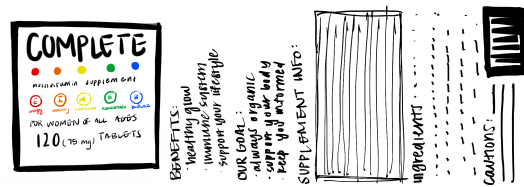 COMPLETE
multivitamin supplement
FOR WOMEN OF ALL AGES
120 (75 mg) TABLETS
BENEFITS:
healthy grow
· immune system
· support your lifestyle
OUR GOAL:
· always organic
· support your body
· keep you informed
SUPPLEMENT INFO:
ingredients
cautions: